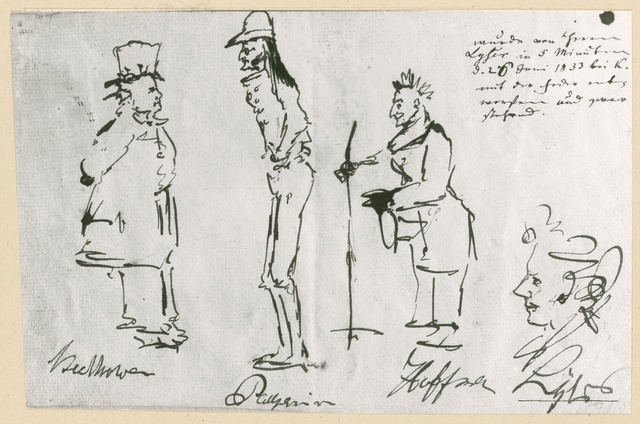 wurde von Herrn
Lyser in 5 Minuten
d. 26 Juni 1833 bei K.
mit der Feder ent-
worfen und zwar
stehend.
Beethoven
Paganini
Hoffmann
Lyser